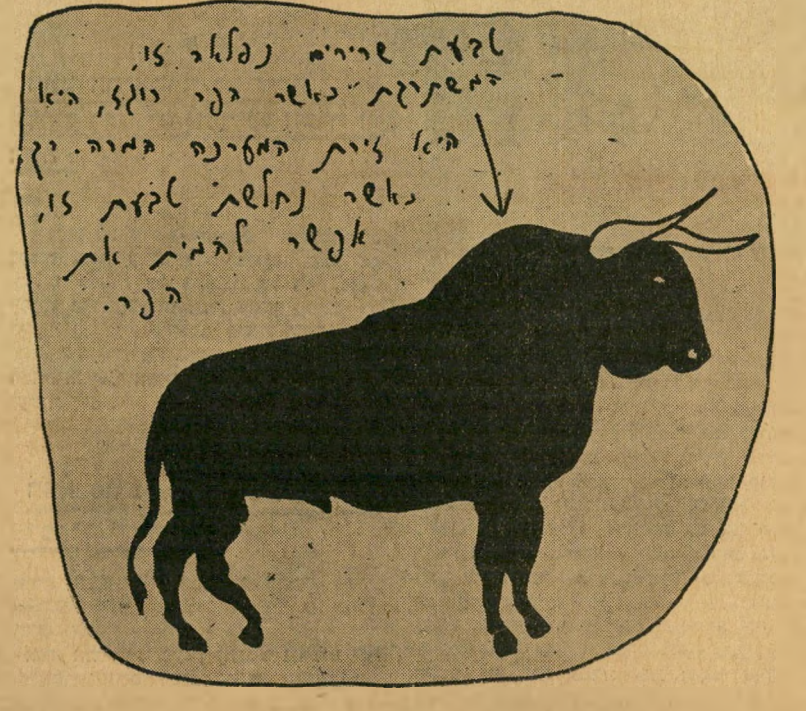 טבעת שרירים נפלאה זו,
המשתרגת כאשר הפר רוגז, היא
היא זירת המערכה המרה. רק
כאשר נחלשת טבעת זו,
אפשר להמית את
הפר.